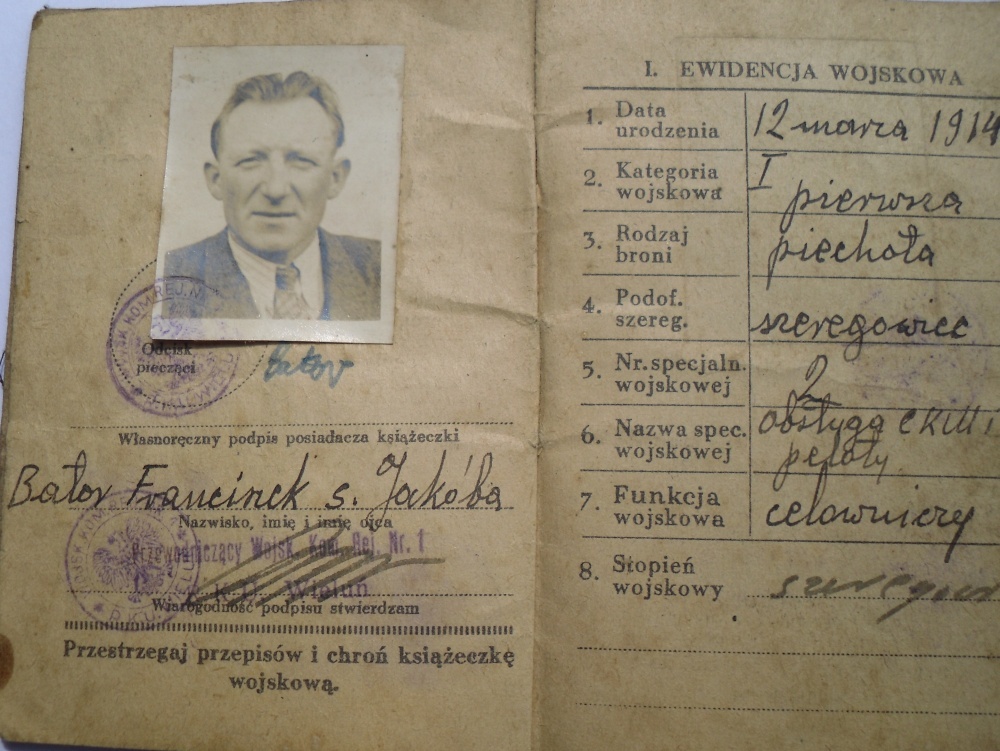 Odcisk
pieczęci
Bator
Własnoręczny podpis posiadacza książeczki
Bator Franciszek s. Jakóba
Nazwisko, imię i imię ojca
Przewodniczący Wojsk. Kom. Rej. Nr. 1
Wieluń
Wiarogodność podpisu stwierdzam
Przestrzegaj przepisów i chroń książeczkę
wojskową.
I. EWIDENCJA WOJSKOWA
1. Data urodzenia 12 marca 1914
2. Kategoria wojskowa I pierwsza
3. Rodzaj broni piechota
4. Podof. szereg. szeregowiec
5. Nr. specjaln. wojskowej 2
6. Nazwa spec. wojskowej obsługa CKM i
7. Funkcja wojskowa celowniczy
8. Stopień wojskowy szeregow